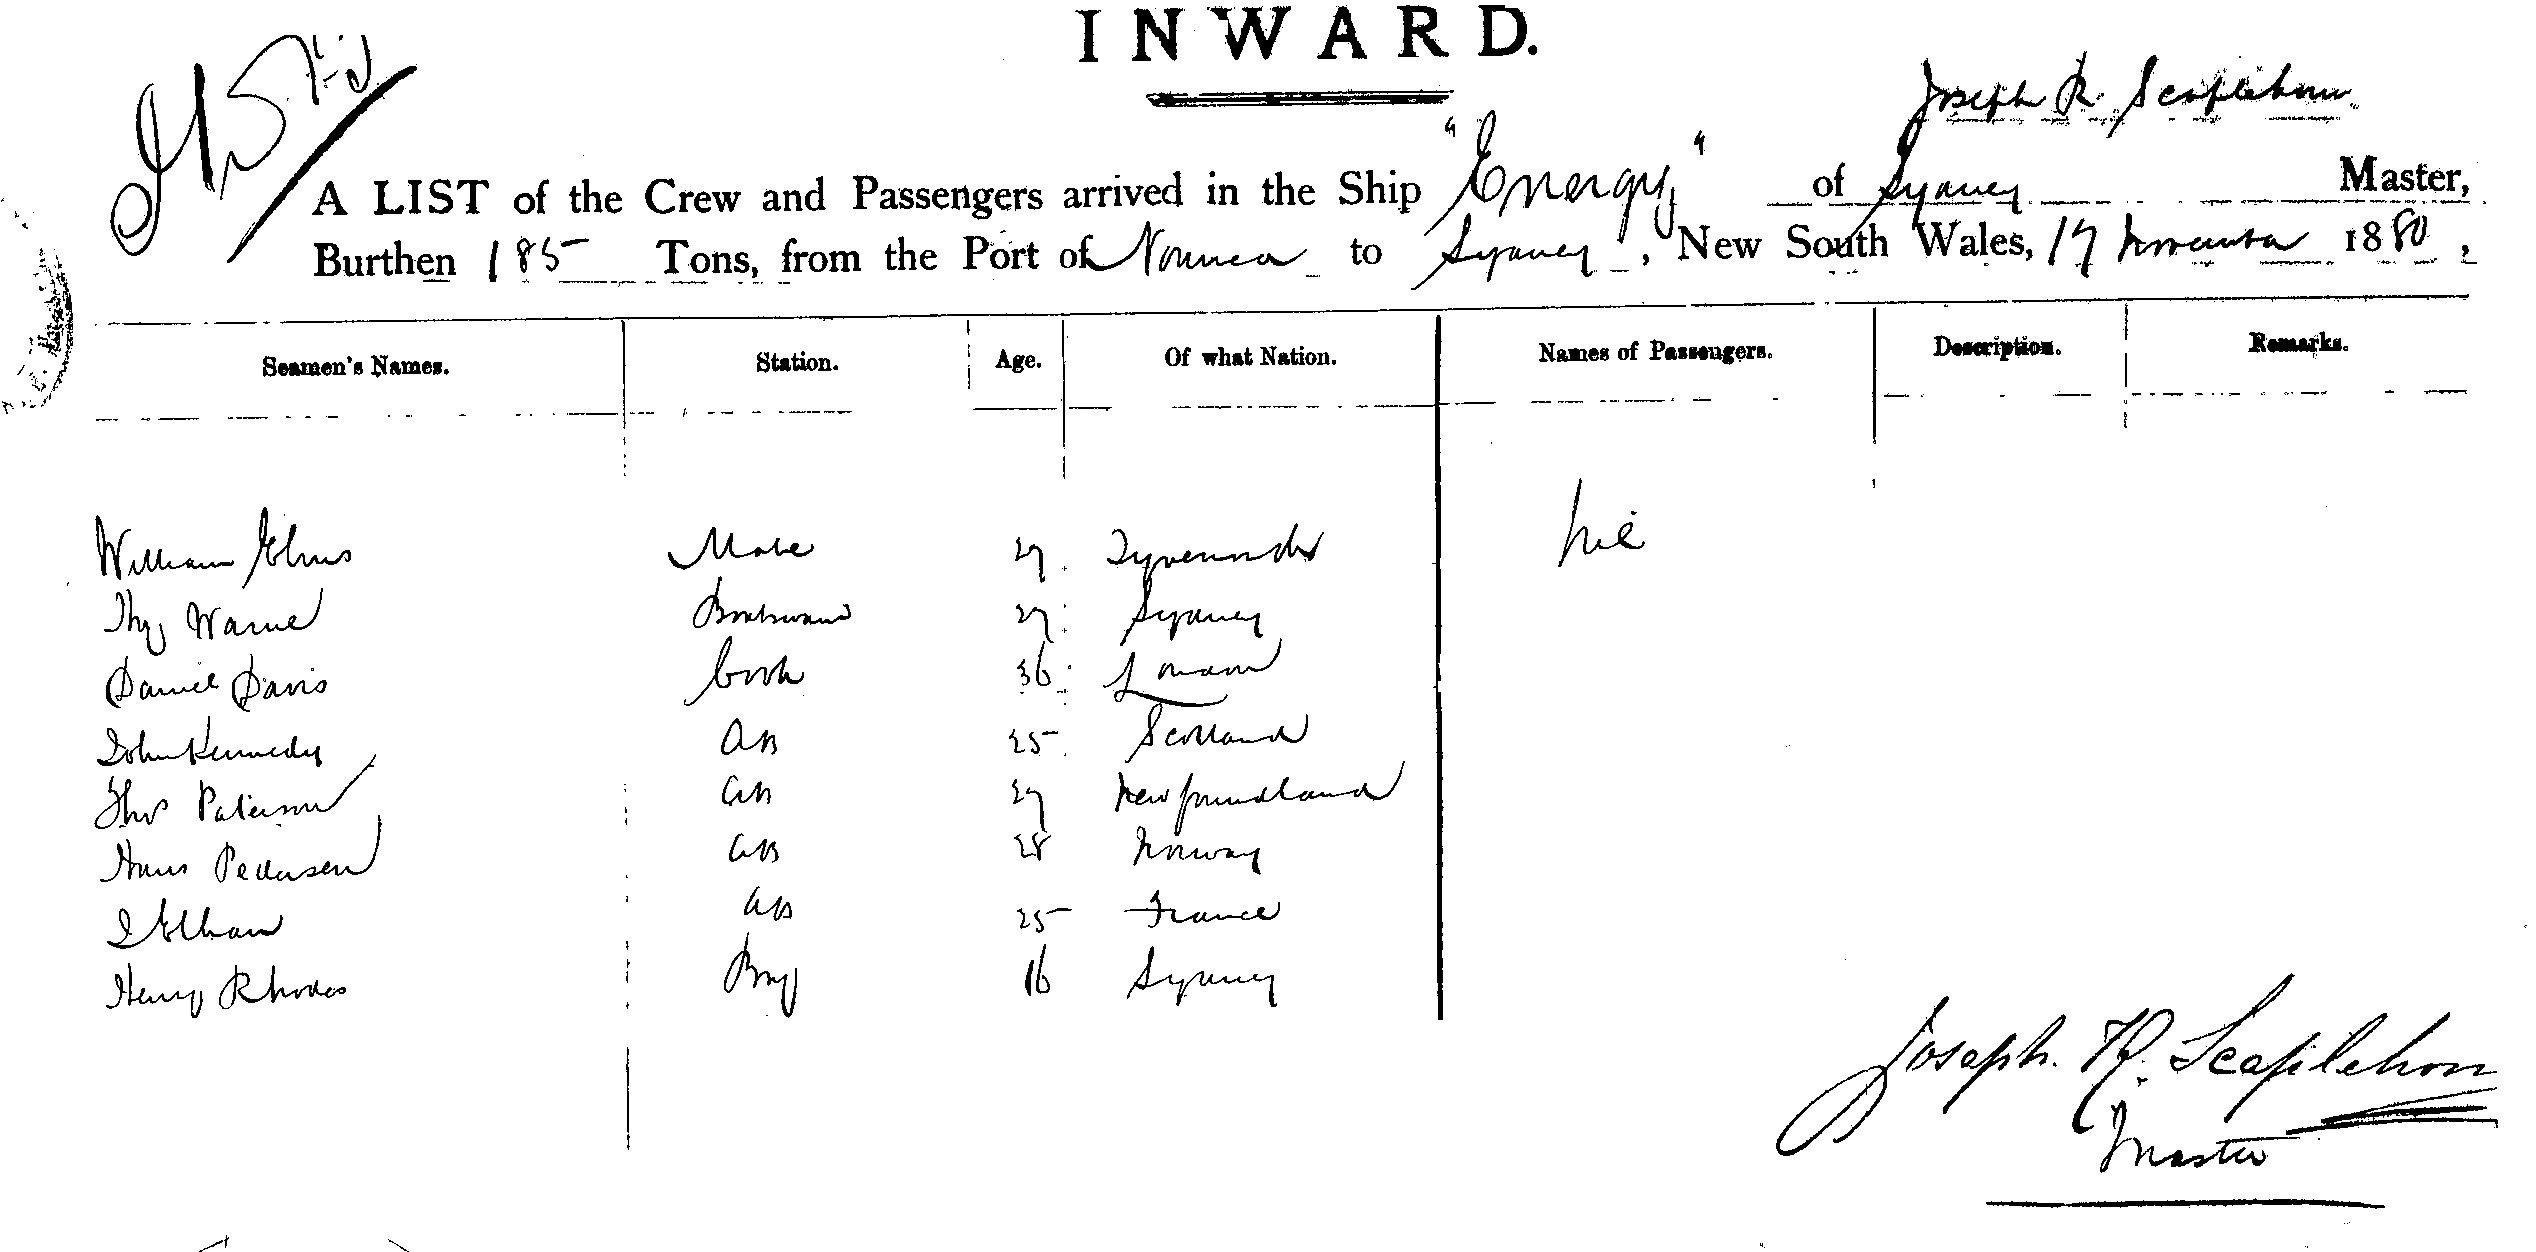 INWARD.
Joseph R Scaplehorn
A LIST of the Crew and Passengers arrived in the Ship "Energy" of Sydney Master,
Burthen 185 Tons, from the Port of Noumea to Sydney, New South Wales, 17 November 1880,
Seamen's Names. Station. Age. Of what Nation. Names of Passengers. Description. Remarks.
William Elms Mate 29 nil
Warne Boatswain 29 Sydney
Daniel Davis Cook 36 London
John Kennedy AB 25 Scotland
Thos Paterson AB 29 Newfoundland
Hans Pedersen AB 28 Norway
AB 25 France
Henry Rhodes Boy 16 Sydney
Joseph. R. Scaplehorn
Master